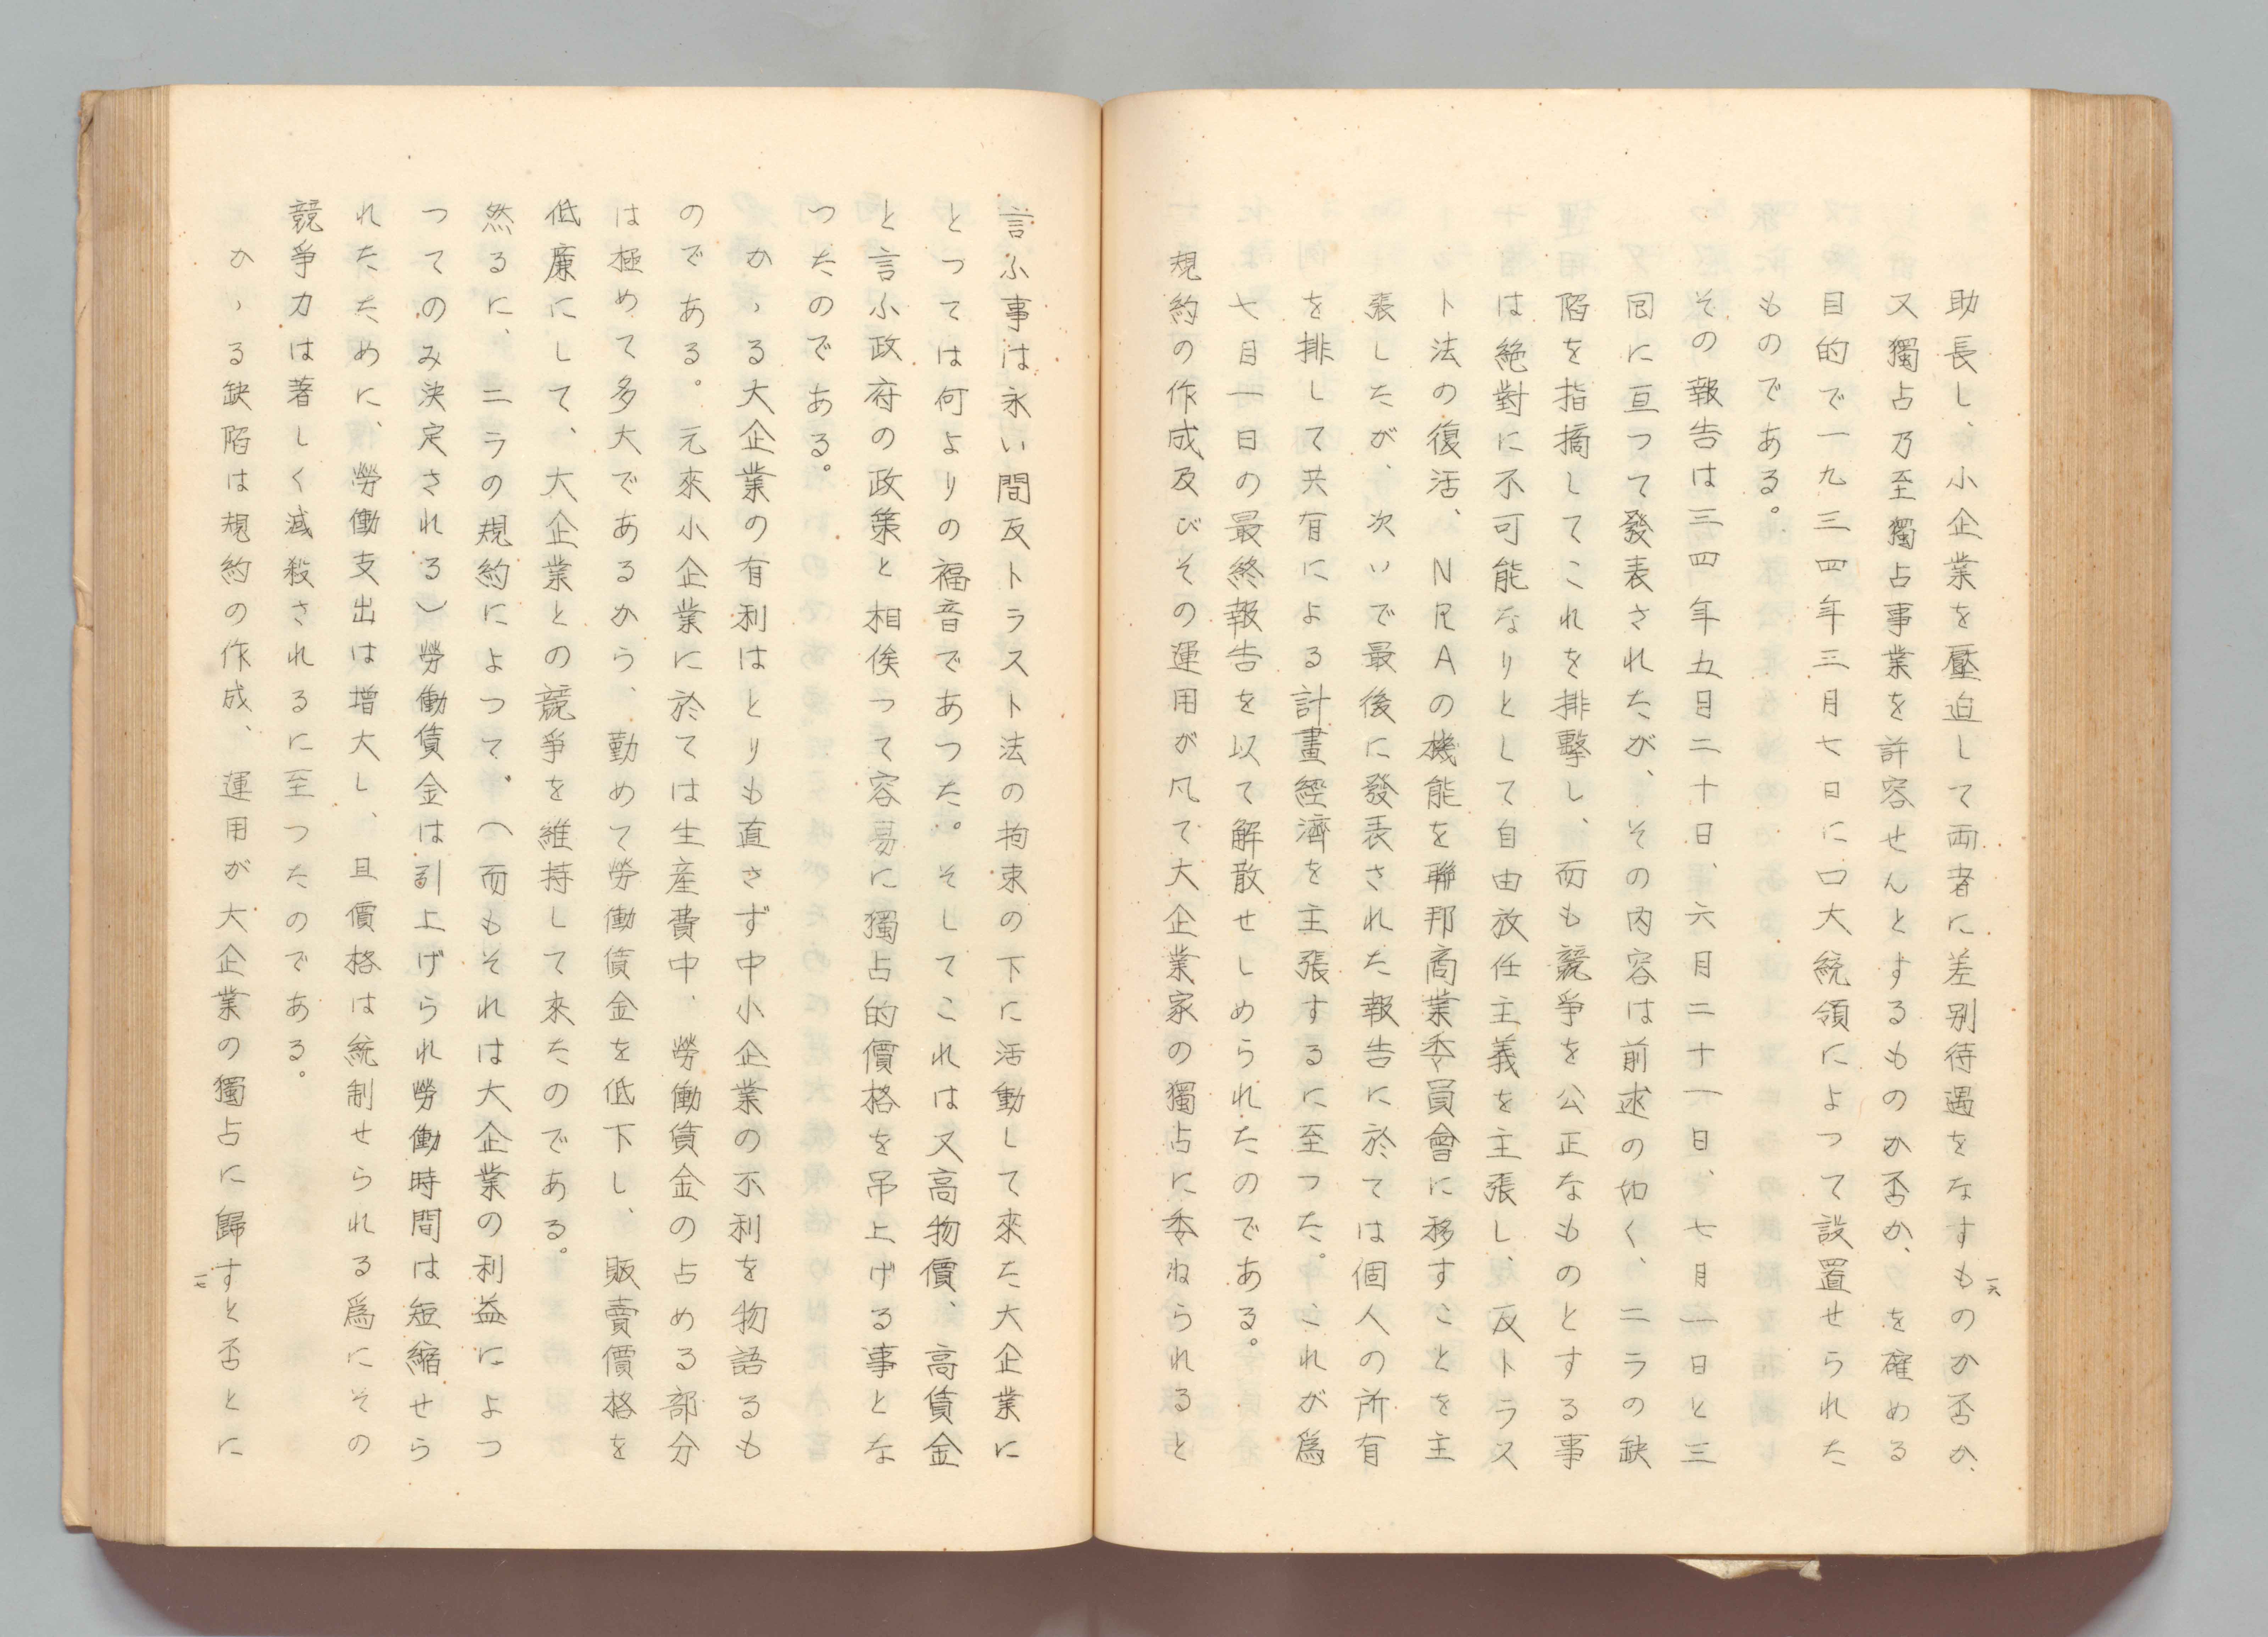 助長し、小企業を壓迫して両者に差別待遇をなすものか否か、
又獨占乃至獨占事業を許容せんとするものか否か、を確める
目的で一九三四年三月七日にロ大統領によつて設置せられた
ものである。
その報告は三四年五月二十日、六月二十一日、七月一日と三
囘に亘つて發表されたが、その内容は前述の如く、ニラの缺
陷を指摘してこれを排擊し、而も競爭を公正なものとする事
は絶對に不可能なりとして自由放任主義を主張し、反トラス
ト法の復活、NRAの機能を聯邦商業委員會に移すことを主
張したが、次いで最後に發表された報告に於ては個人の所有
を排して共有による計畫經濟を主張するに至つた。これが爲
七月一日の最終報告を以て解散せしめられたのである。
規約の作成及びその運用が凡て大企業家の獨占に委ねられると
一六
言ふ事は永い間反トラスト法の拘束の下に活動して來た大企業に
とつては何よりの福音であつた。そしてこれは又高物價、高賃金
と言ふ政府の政策と相俟つて容易に獨占的價格を吊上げる事とな
つたのである。
かゝる大企業の有利はとりも直さず中小企業の不利を物語るも
のである。元來小企業に於ては生産費中、勞働賃金の占める部分
は極めて多大であるから、勤めて勞働賃金を低下し、販賣價格を
低廉にして、大企業との競爭を維持して來たのである。
然るに、ニラの規約によつて。(而もそれは大企業の利益によつ
つてのみ決定される)勞働賃金は引上げられ勞働時間は短縮せら
れたために、勞働支出は増大し、且價格は統制せられる爲にその
競爭力は著しく減殺されるに至つたのである。
かゝる缺陷は規約の作成、運用が大企業の獨占に歸すと否とに
一七